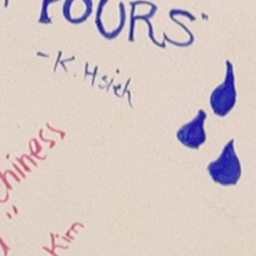 POURS"
-K. Hsieh
chiness
"
Kim